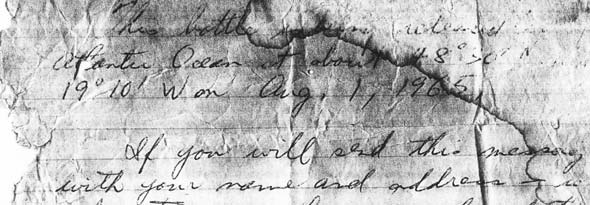 This bottle is being released in
Atlantic Ocean at about 48°
19°10' W on Aug. 1, 1965,
If you will send this message
with your name and address